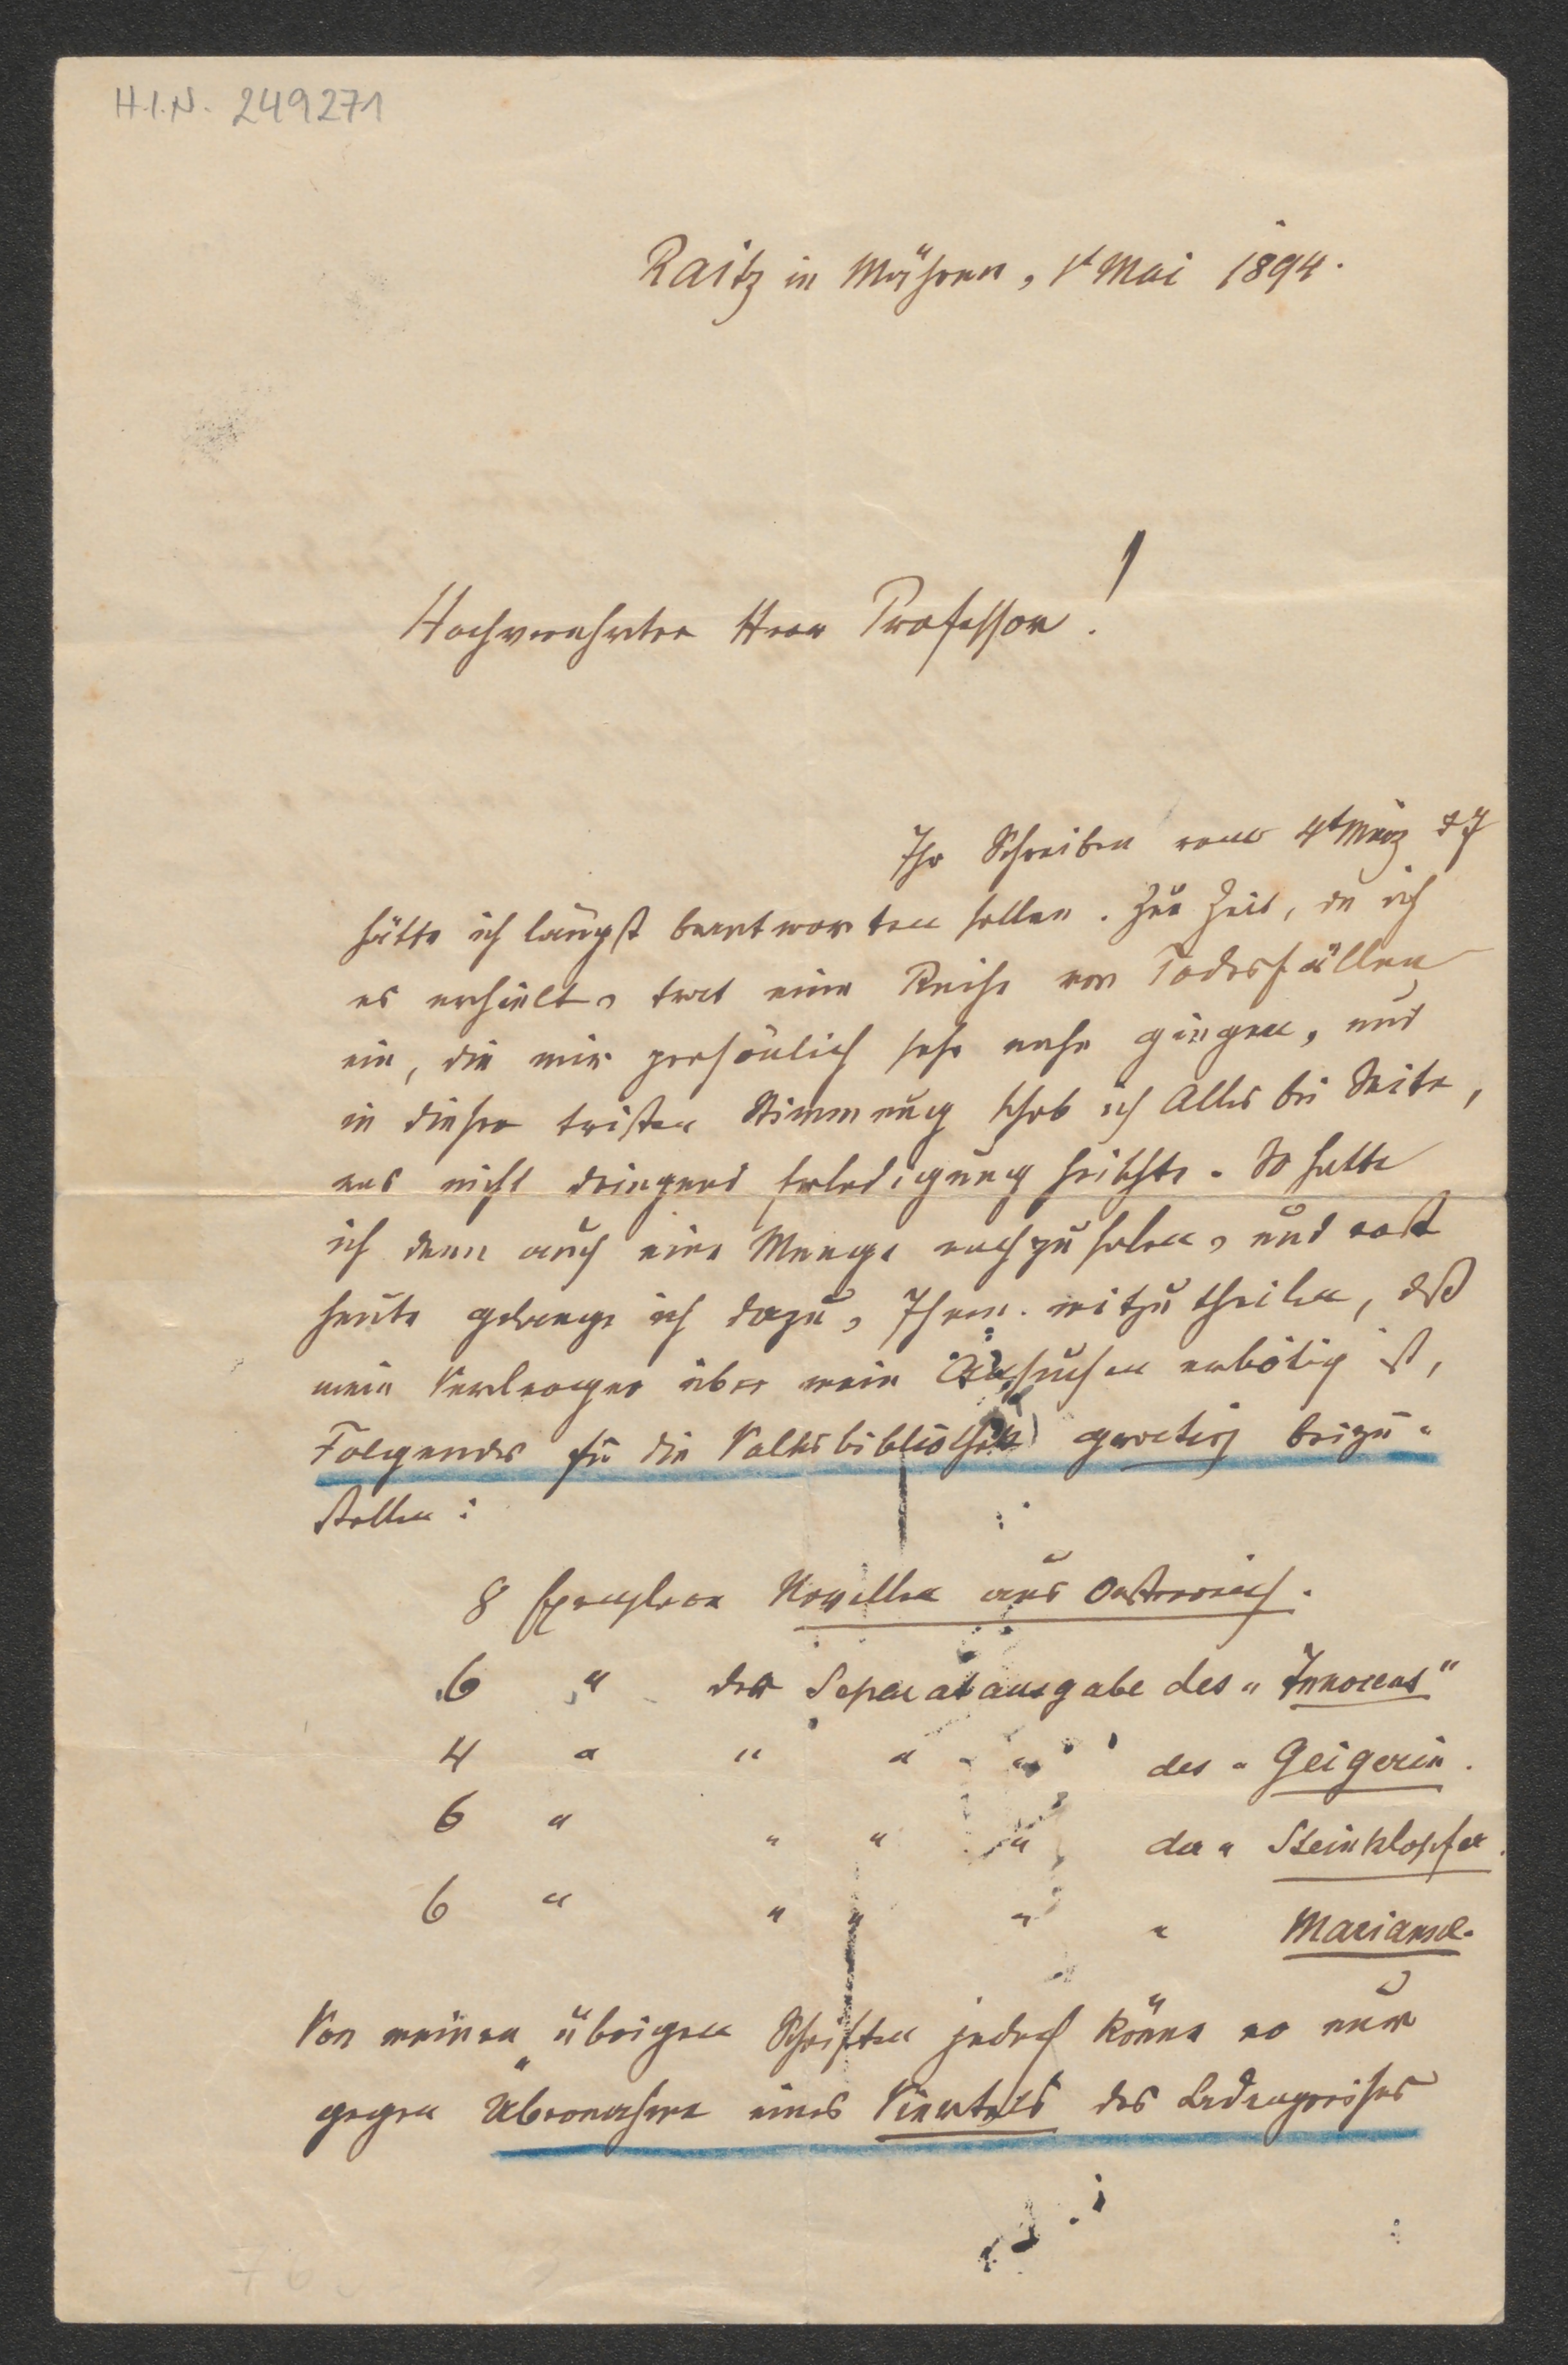 H.I.N. 249271
Raitz in Mähren, 1t Mai 1894.
Hochverehrter Herr Professor!
Ihr Schreiben vom 4t März dJ
hätte ich längst beantworten sollen. Zur Zeit, da ich
es erhielt, trat eine Reihe von Todesfällen
ein, die mir persönlich sehr nahe gingen, und
in dieser tristen Stimmung schob ich Alles bei Seite,
was nicht dringend Erledigung heischte. So hatte
ich denn auch eine Menge nachzuholen, und erst
heute gelange ich dazu, Ihnen mitzutheilen, daß
mein Verleger über mein Ansuchen erbötig ist,
Folgendes für die Volksbibliothek gratis beizu-
stellen:
8 Exemplare Novellen aus Oesterreich.
6 " der Separatausgabe des "Innocens"
4 " " " " der " Geigerin.
6 " " " " der " Steinklopfer.
6 " " " " " Marianne.
Von meinen übrigen Schriften jedoch könne er nur
gegen Übernahme eines Viertels des Ladenpreises